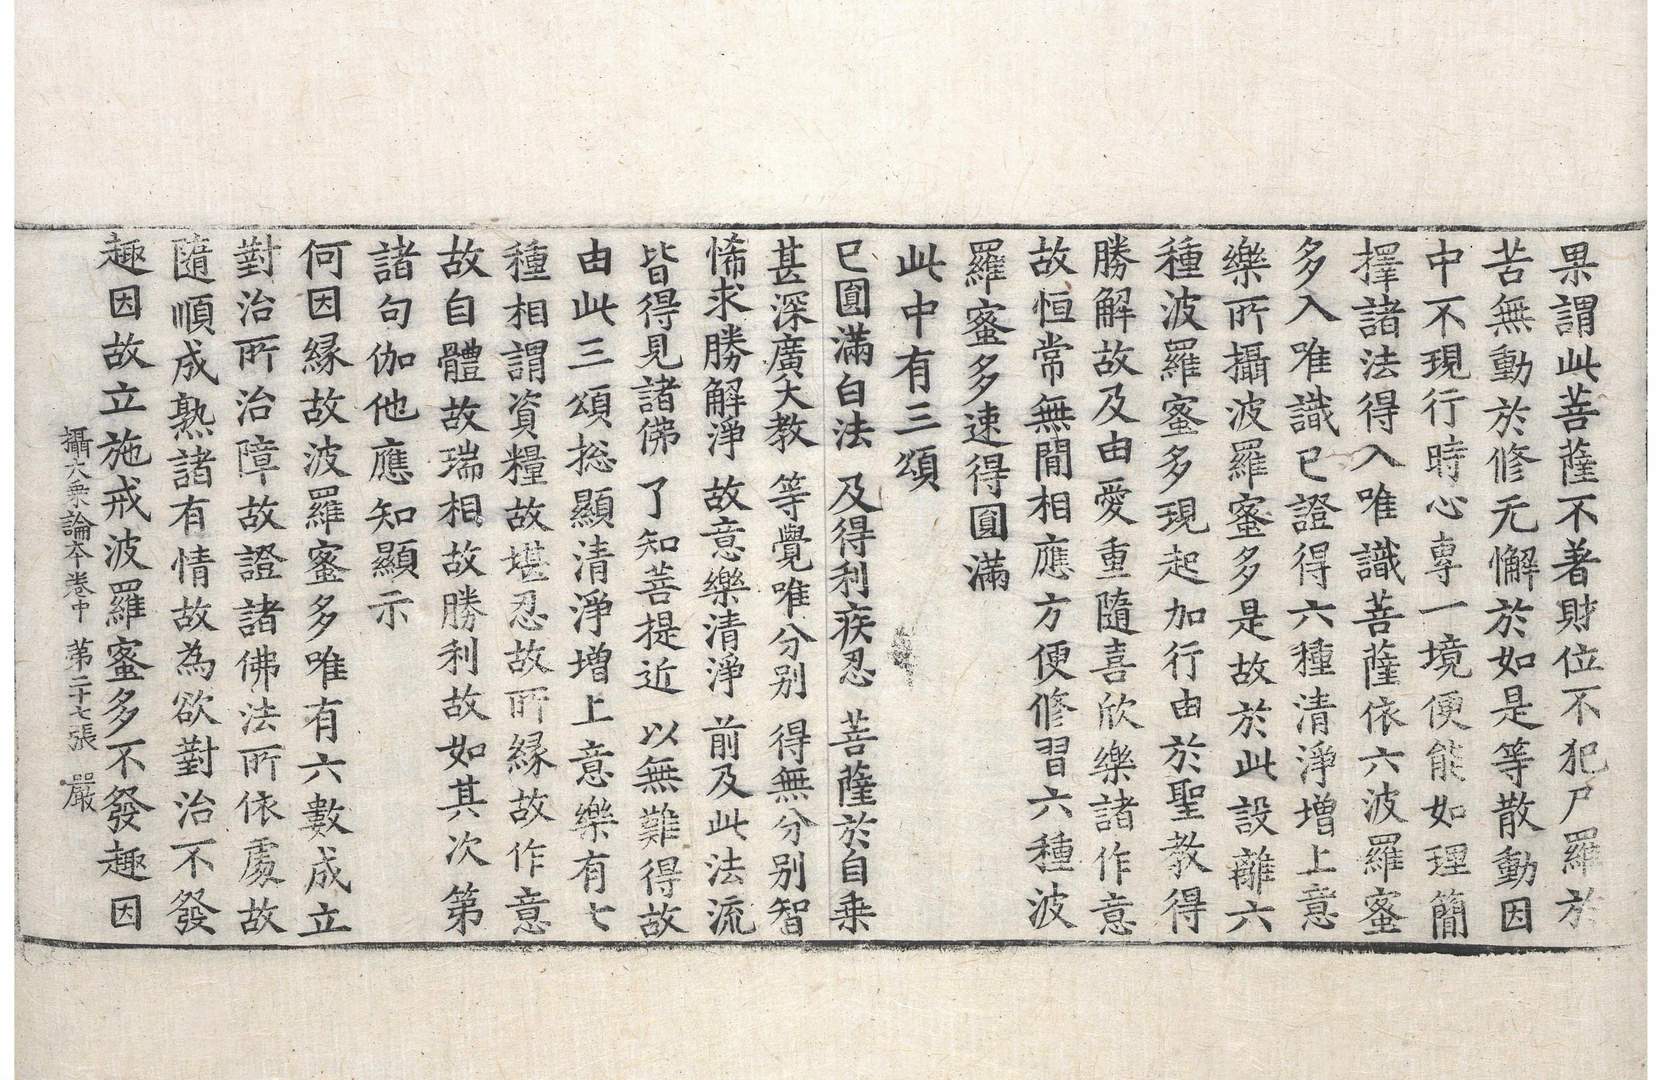 果謂此菩薩不著財位不犯尸羅於
苦無動於修无懈於如是等散動因
中不現行時心專一境便能如理簡
擇諸法得入唯識菩薩依六波羅蜜
多入唯識已證得六種清淨增上意
樂所攝波羅蜜多是故於此設離六
種波羅蜜多現起加行由於聖教得
勝解故及由愛重隨喜欣樂諸作意
故恒常無閒相應方便修習六種波
羅蜜多速得圓滿
此中有三頌
已圓滿白法 及得利疾忍 菩薩於自乘
甚深廣大教 等覺唯分別 得無分別智
悕求勝解淨 故意樂清淨 前及此法流
皆得見諸佛 了知菩提近 以無難得故
由此三頌捴顯清淨增上意樂有七
種相謂資糧故堪忍故所緣故作意
故自體故瑞相故勝利故如其次第
諸句伽他應知顯示
何因緣故波羅蜜多唯有六數成立
對治所治障故證諸佛法所依處故
隨順成熟諸有情故為欲對治不發
趣因故立施戒波羅蜜多不發趣因
攝大乘論本卷中 第二十七張 嚴